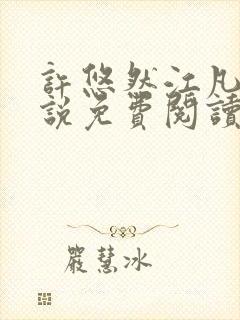 許悠然江凡
說免費閱讀
嚴慧冰